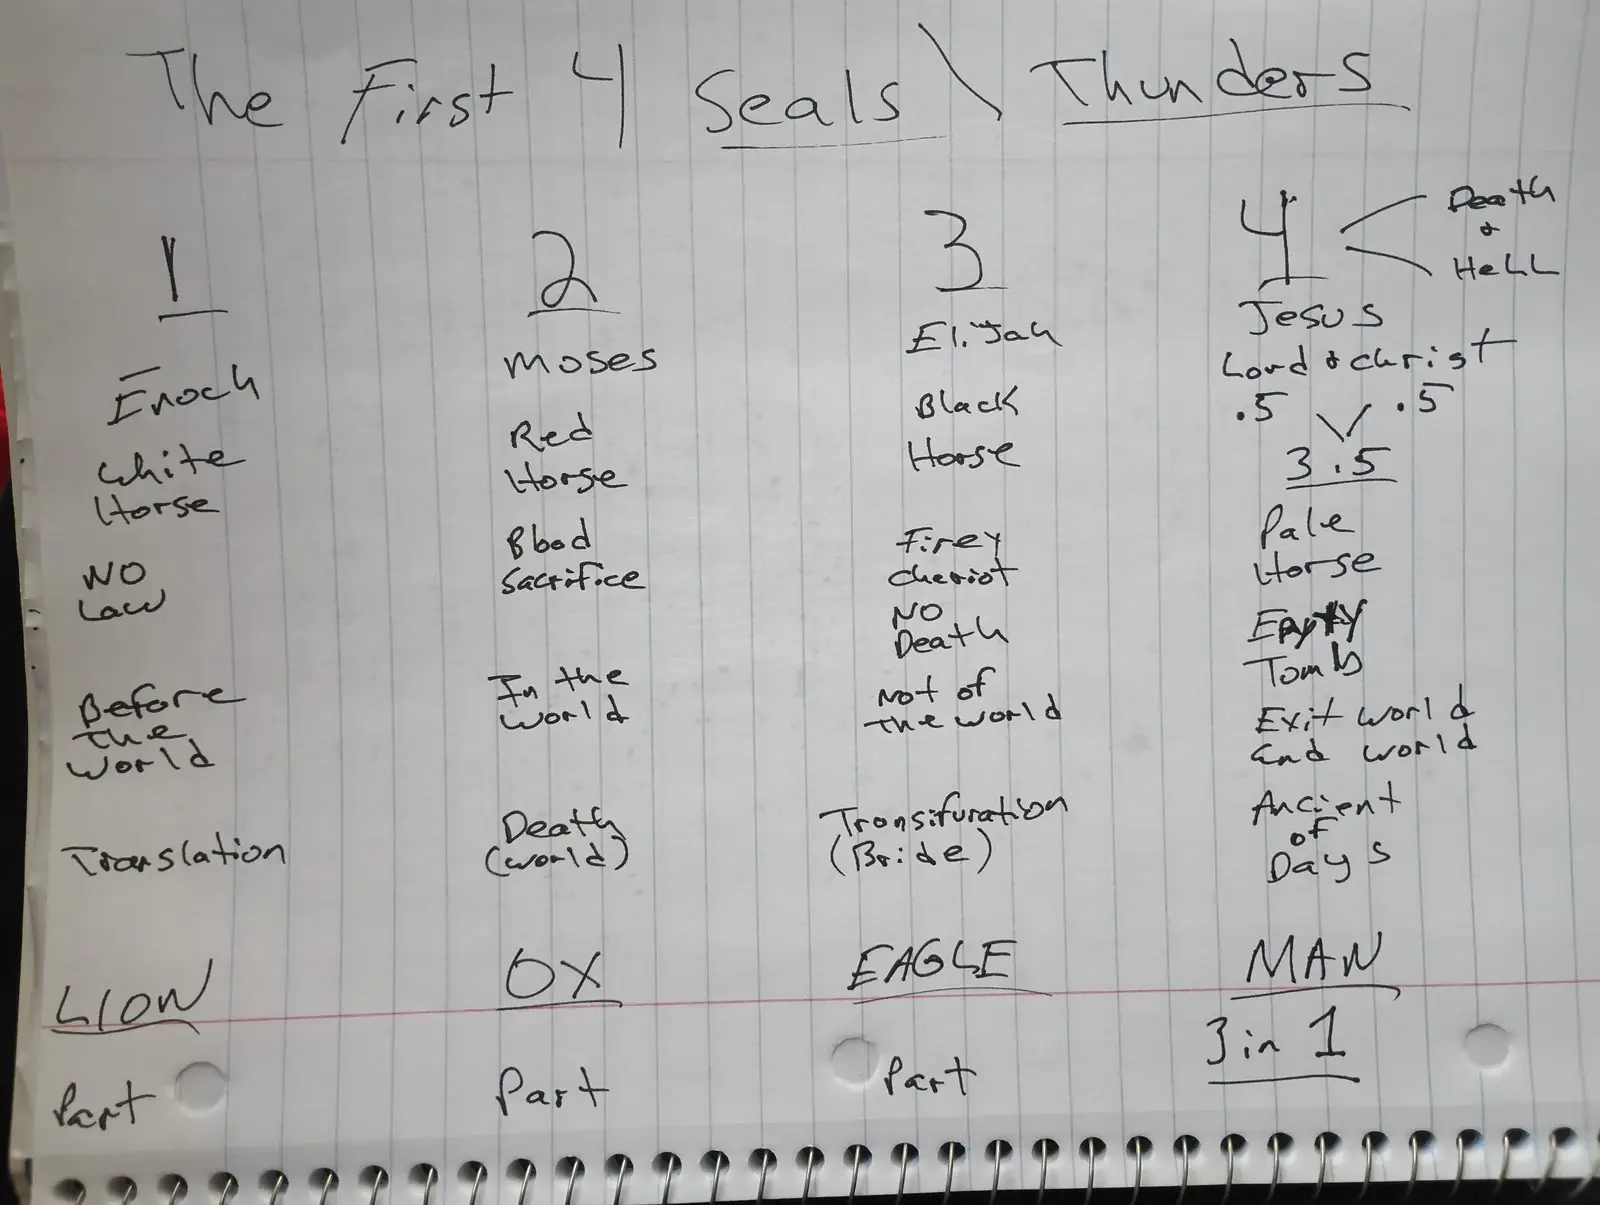 The First 4 Seals \ Thunders
1
Enoch
White
Horse
NO
Law
Before
the
world
Translation
LION
Part
2
Moses
Red
Horse
Blood
Sacrifice
In the
world
Death
(world)
OX
Part
3
Elijah
Black
Horse
Firey
Cheriot
NO
Death
Not of
the world
Transifuration
(Bride)
EAGLE
Part
4
Death
&
HeLL
Jesus
Lord & Christ
.5 .5
3.5
Pale
Horse
Empty
Tomb
Exit world
End world
Ancient
of
Days
MAN
3 in 1